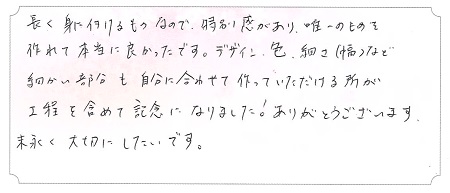 長く身に付けるものなので、特別感があり、唯一のものを
作れて本当に良かったです。デザイン、色、細さ(幅)など
細かい部分も自分に合わせて作っていただける所が
工程を含めて記念になりました!ありがとうございます。
末永く大切にしたいです。